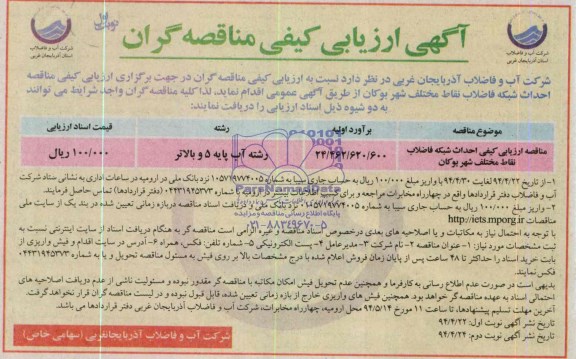 آگهی ارزیابی کیفی مناقصه گران
شرکت آب و فاضلاب
استان آذربایجان غربی
شرکت آب و فاضلاب
استان آذربایجان غربی
شرکت آب و فاضلاب آذربایجان غربی در نظر دارد نسبت به ارزیابی کیفی مناقصه گران در جهت برگزاری ارزیابی کیفی مناقصه
احداث شبکه فاضلاب نقاط مختلف شهر بوکان از طریق آگهی عمومی اقدام نماید، لذا کلیه مناقصه گران واجد شرایط می توانند
به دو شیوه ذیل اسناد ارزیابی را دریافت نمایند:
موضوع مناقصه برآورد اولیه رشته قیمت اسناد ارزیابی
مناقصه ارزیابی کیفی احداث شبکه فاضلاب نقاط مختلف شهر بوکان ۲۴/۴۶۲/۶۲۰/۶۰۰ رشته آب پایه ۵ و بالاتر ۱۰۰/۰۰۰ ریال
۱- از تاریخ ۹۴/۴/۲۲ لغایت ۹۴/۴/۳۰ با واریز مبلغ ۱۰۰/۰۰۰ ریال به حساب جاری سیبا به شماره ۰۱۰۵۷۱۹۷۷۴۰۰۵ نزد بانک ملی در ارومیه در ساعات اداری به نشانی ستاد شرکت
آب و فاضلاب دفتر قراردادها واقع در چهارراه مخابرات مراجعه و برای
۲- واریز مبلغ ۱۰۰/۰۰۰ ریال به حساب جاری سیبا به شماره ۰۱۰۵۷۱۹۷۷۴۰۰۵ نزد بانک ملی و دریافت اسناد مناقصه درباره زمانی تعیین شده در بند یک از سایت ملی
مناقصات http://iets.mporg.ir
با توجه به احتمال نیاز به مکاتبات و یا اصلاحیه های بعدی درخصوص اسناد مناقصه و غیره الزامی است مناقصه گر به هنگام دریافت اسناد از سایت اینترنتی نسبت به
ثبت مشخصات مورد نیاز: ۱- عنوان مناقصه ۲- نام شرکت ۳- مدیرعامل ۴- پست الکترونیکی ۵- شماره تلفن، فکس، همراه ۶- آدرس در سایت اقدام و فیش واریزی از
بابت خرید اسناد را حداکثر تا ۴۸ ساعت پس از پایان زمان فروش اعلام شده با درج مشخصات بالا بر روی فیش به مسئول مناقصه تحویل و یا به شماره ۰۴۴۳۱۹۴۵۳۷۳
فکس نمایند.
بدیهی است در صورت عدم اطلاع رسانی به کارفرما و همچنین عدم تحویل فیش امکان مکاتبه با مناقصه گر مقدور نبوده و مسئولیت ناشی از عدم دریافت اصلاحیه های
احتمالی اسناد به عهده مناقصه گر خواهد بود. همچنین فیش های واریزی خارج از بازه زمانی تعیین شده، قابل قبول نبوده و در لیست مناقصه گران قرار نخواهد گرفت.
آخرین مهلت تسلیم پیشنهادها، تا ساعت ۱۱ مورخ ۹۴/۵/۱۴ محل ارومیه، چهارراه مخابرات، شرکت آب و فاضلاب آذربایجان غربی دفتر قراردادها می باشد.
تاریخ نشر آگهی نوبت اول: ۹۴/۴/۲۲
تاریخ نشر آگهی نوبت دوم: ۹۴/۴/۲۴
شرکت آب و فاضلاب آذربایجانغربی (سهامی خاص)
ParsNamadData
پایگاه اطلاع رسانی مناقصه و مزایده
۰۲۱-۸۸۳۴۹۶۷۰-۵